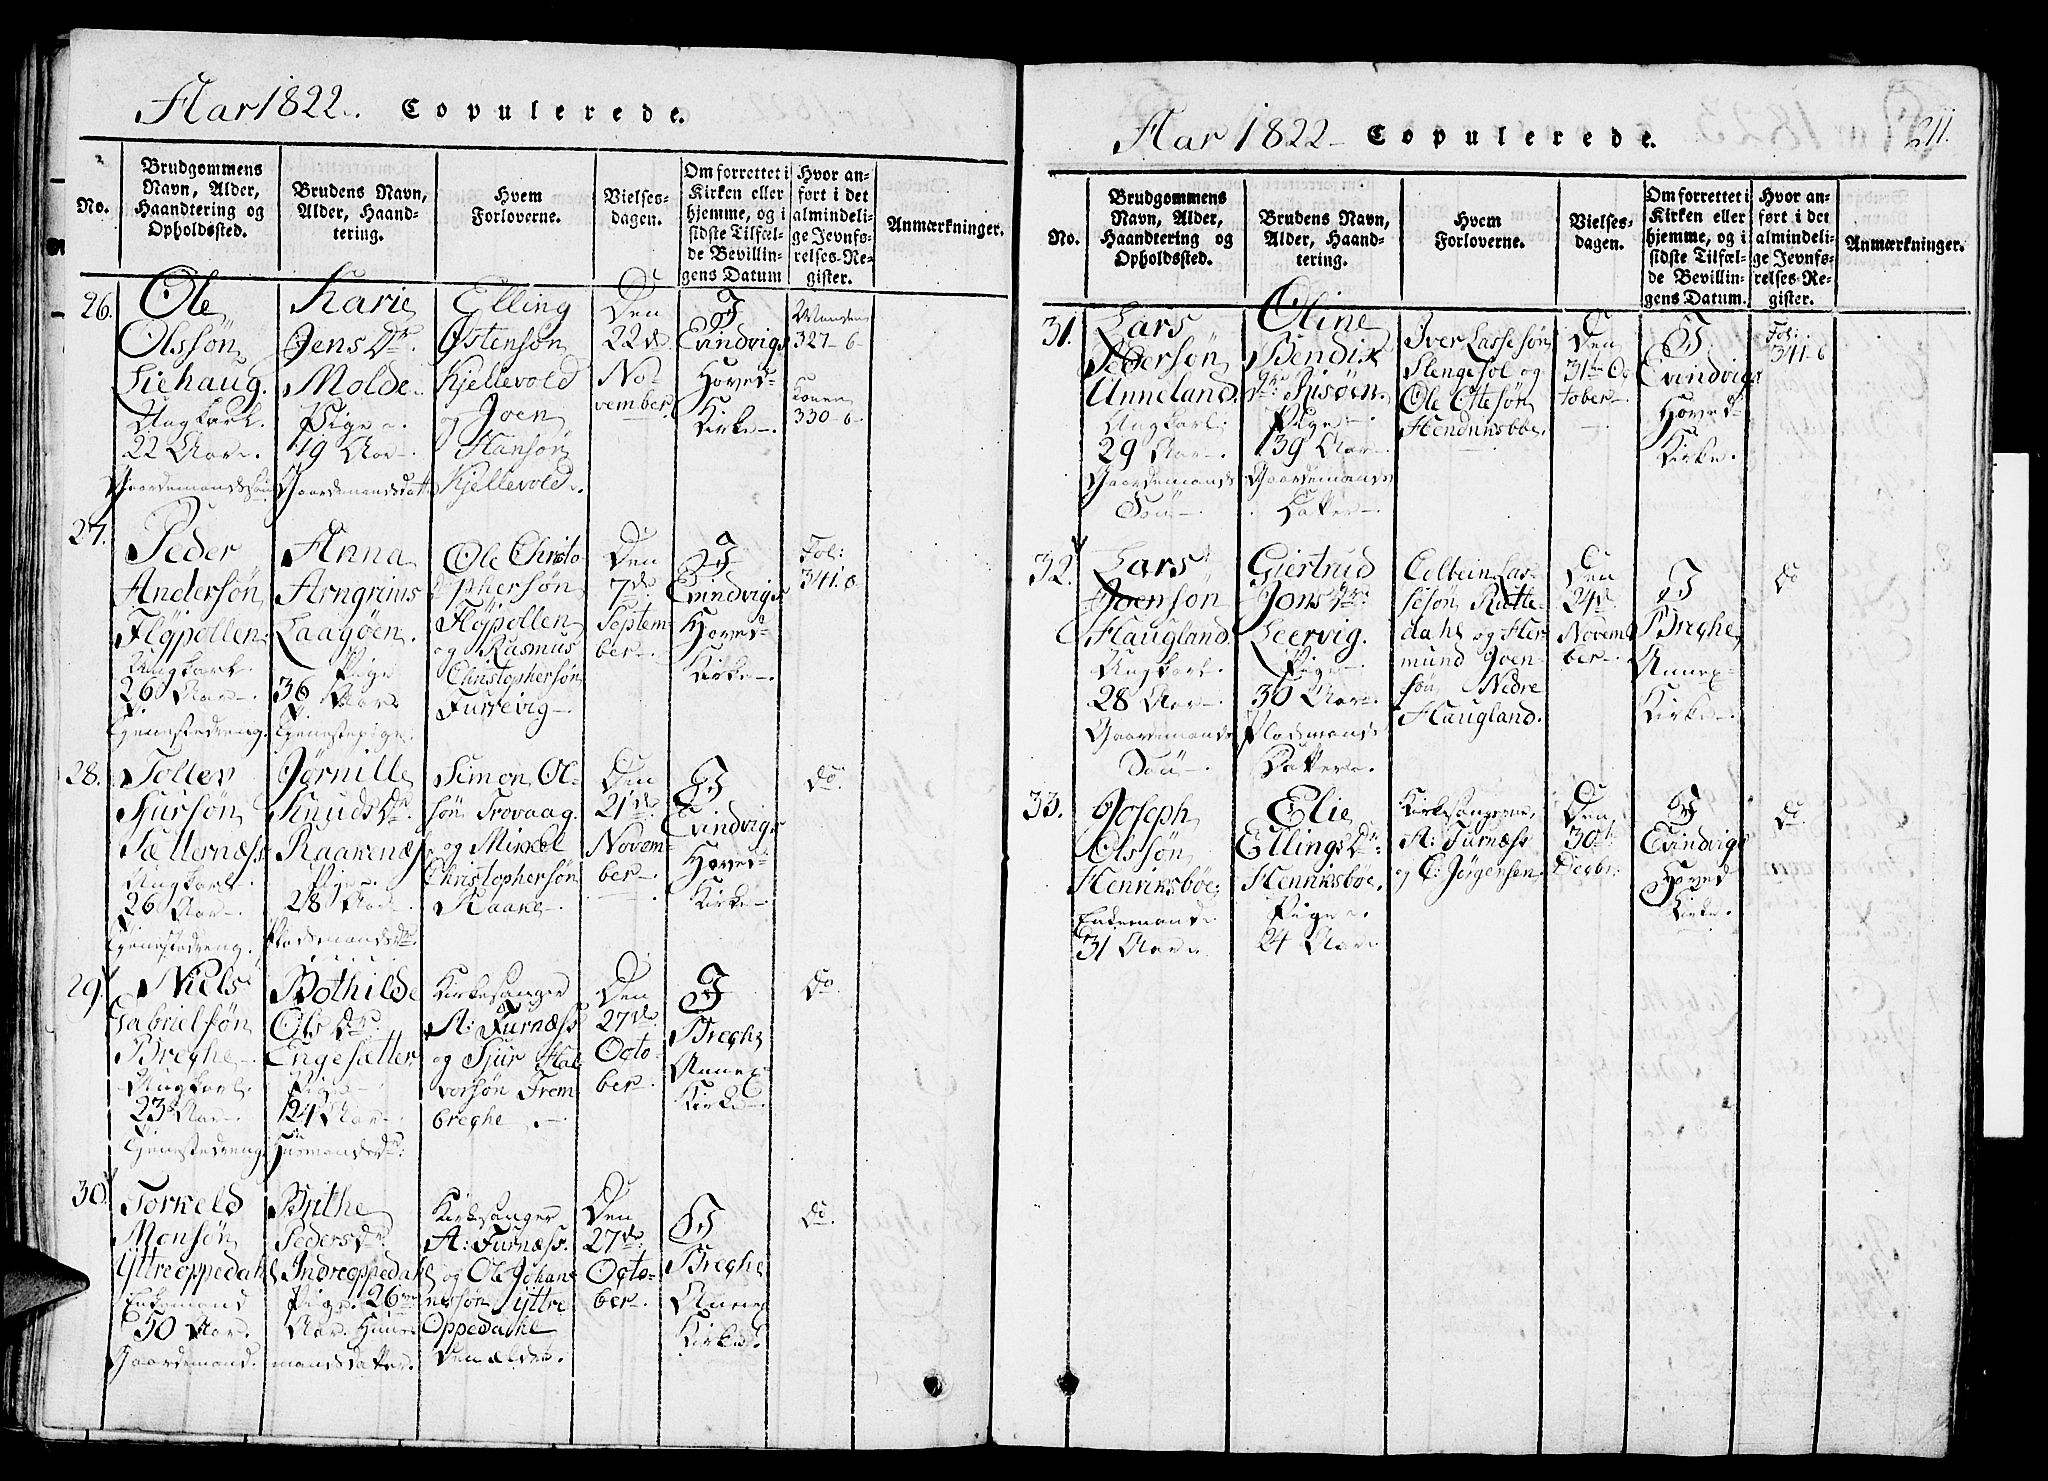 Aar 1822. Copulerede.
No.
Brudgommens
Navn, Alder,
Haandtering og
Opholdssted.
Brudens Navn,
Alder, Haand-
tering.
Hvem
Forloverne.
Vielses-
dagen.
Om forrettet i
Kirken eller
hjemme, og i
sidste Tilfæl-
de Bevillin-
gens Datum
Hvor an-
ført i det
almindeli-
ge Jevnfø-
relses-Re-
gister.
Anmærkninger.
26.
Ole
Olssøn
Siehaug.
Ungkarl.
22 Aar.
Gaardemandssøn
Karie
Jens Dr
Molde.
Pige.
19 Aar.
Gaardemandsdatt
Elling
Østensøn
Kjellevold
og Joen
Hansøn
Kjellevold.
Den
22de
No-
vember
I
Evindvigs
Hoved-
Kirke.
Manden
327-6-
Konen
330-6-
27.
Peder
Andersøn
Fløpollen.
Ungkarl.
26 Aar.
Tjenestedreng.
Anna
Arngrims
Laagøen.
Pige
36 Aar.
Tjenestepige.
Ole Christo-
phersøn
Fløpollen
og Rasmus
Christophersøn
Furrevig.
Den
7de
Septem-
ber.
I
Evindvigs
Hoved-
Kirke.
Fol:
341.6
28.
Tollev
Sjursøn
Sætternæss
Ungkarl.
26 Aar.
Tjenestedreng.
Jørnille
Knuds Dr.
Raakenæs
Pige.
28 Aar.
Pladsmandsdr.
Simon Ol-
søn Trovaag
og Mikkel
Christophersøn
Raake.
Den
21de
Novem-
ber.
I
Evindvigs
Hoved-
Kirke.
do.
29.
Niels
Gabrielsøn
Breche.
Ungkarl.
23 Aar.
Tjenestedreng
Bothilde
Ols Dr.
Engesætter
Pige.
24 Aar.
Huusmandsdr.
Kirkesanger
A: Furnæss
og Sjur Hal
vorsøn Frem
breche.
Den
27de
Octo-
ber.
I
Breche
Annex-
Kirke.
do.
30.
Torkeld
Monsøn
Yttreoppedahl
Enkemand
50 Aar.
Gaardemand.
Brithe
Peders Dr.
Indreoppedahl
Pige. 26
Aar. Huus-
mandsdatter.
Kirkesanger
A: Furnæss.
og Ole Johan-
nessøn Yttre
Oppedahl
den ældre.
Den
27de
Octo-
ber.
I
Breche
Annex
Kirke.
do.
Aar 1822 Copulerede.
211.
No.
Brudgommens
Navn, Alder,
Haandtering og
Opholdssted.
Brudens Navn,
Alder, Haand-
tering.
Hvem
Forloverne.
Vielses-
dagen.
Om forrettet i
Kirken eller
hjemme, og i
sidste Tilfæl-
de Bevillin-
gens Datum.
Hvor an-
ført i det
almindeli-
ge Jevnfø-
relses-Re-
gister.
Anmærkninger.
31.
Lars
Pedersøn
Unneland.
Ungkarl.
29 Aar.
Gaardemands
Søn.
Oline
Bendix
Dr. Risøen.
Pige.
39 Aar.
Gaardemands
Datter.
Iver Lassesøn
Slengesol og
Ole Ottesøn
Hendriksbøe.
Den
31te Oc
tober.
I
Evindvigs
Hoved-
Kirke.
Fol:
341-6
32.
Lars
Joensøn
Haugland.
Ungkarl.
28 Aar.
Gaardemands
Søn.
Giertrud
Jons Dr.
Leervig.
Pige.
30 Aar.
Pladsmands
Datter.
Colbein Las-
sesøn Rutte-
dahl og Her-
mund Joen-
søn Nedre
Haugland.
Den
24de
Novem-
ber.
I
Breche
Annex-
Kirke.
do
33.
Joseph
Olssøn
Henriksbøe.
Enkemand.
31 Aar.
Elie
Ellings Dr:
Henriksbøe.
Pige.
24 Aar.
Kirkesangerne
A: Furnæss
og C: Jørgensen
Den
30te
Decbr:
I
Evindvigs
Hoved
Kirke.
do.